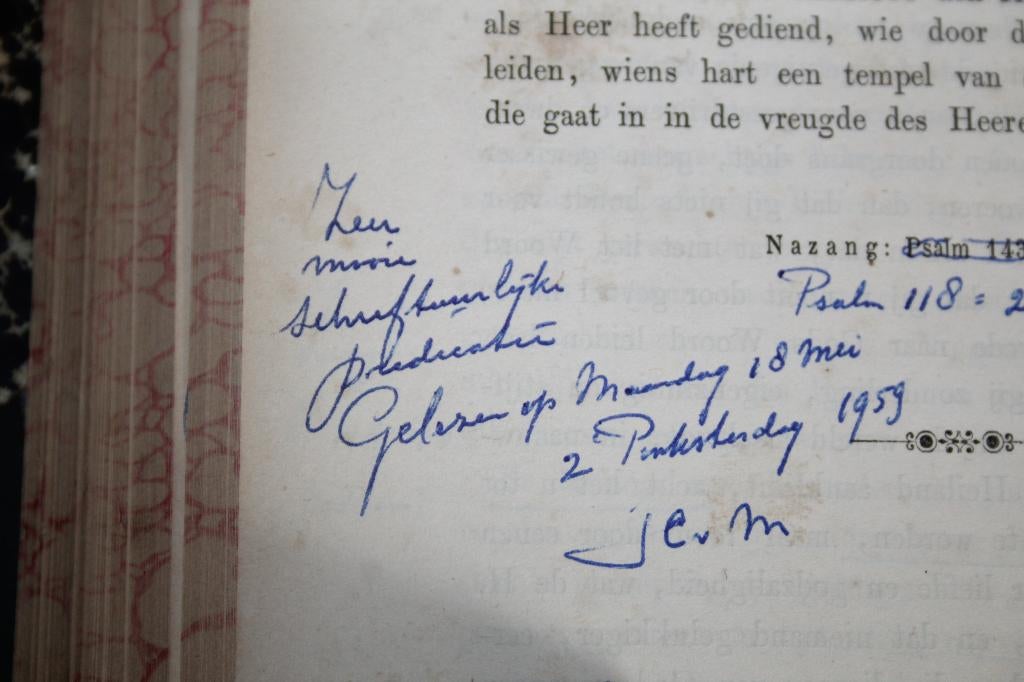 als Heer heeft gediend, wie door d
leiden, wiens hart een tempel van
die gaat in in de vreugde des Heere
Nazang: Psalm 143
Psalm 118 = 2
Zeer
mooie
schriftuurlijke
predicatie
Gelezen op Maandag 18 Mei
2e Pinksterdag 1959
J C v M